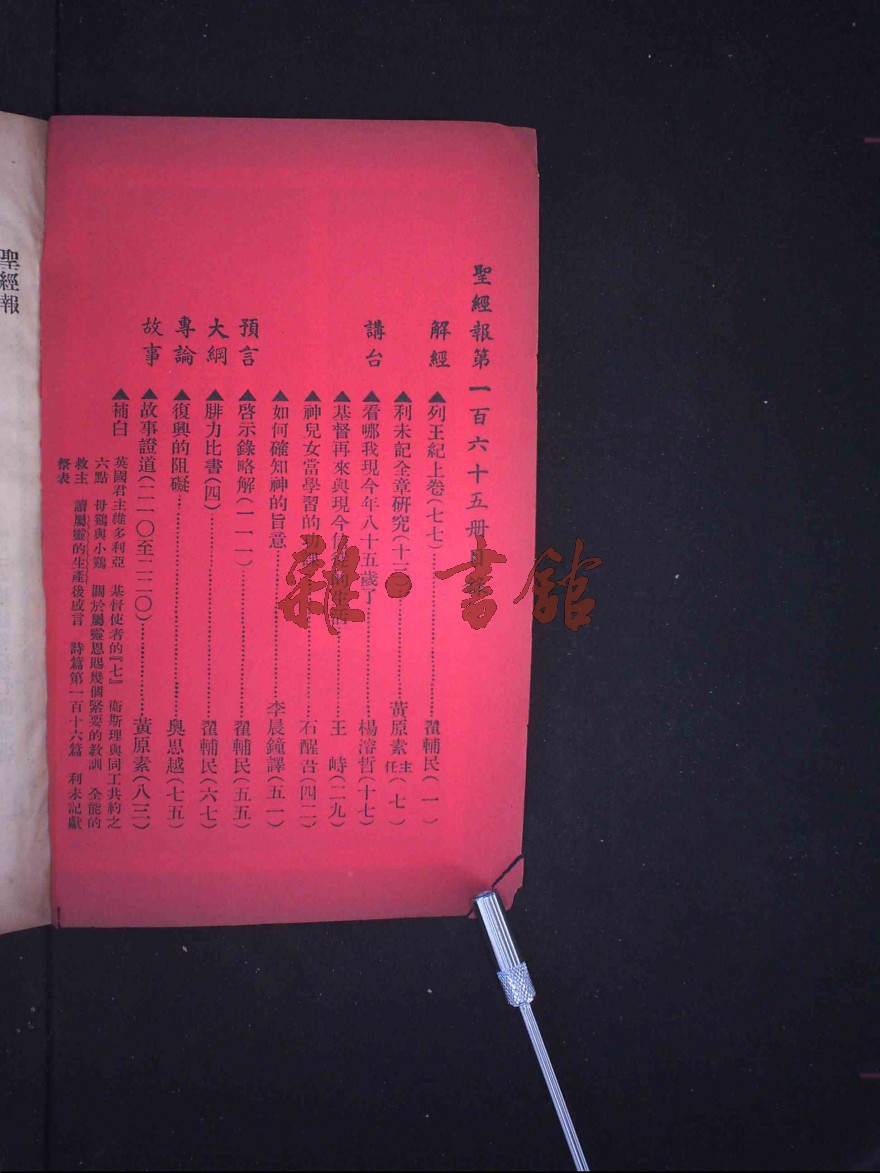 聖經報第一百六十五册目錄
解經
▲列王紀上卷(七七)………翟輔民(一)
▲利未記全章研究(十二)………黃原素主任(七)
講台
▲看哪我現今年八十五歲了………楊溶哲(十七)
▲基督再來與現今………王峙(二九)
▲神兒女當學習的功………石醒吾(四二)
▲如何確知神的旨意………李晨鐘譯(五一)
預言
▲啓示錄略解(一一一)………翟輔民(五五)
大綱
▲腓力比書(四)………翟輔民(六七)
專論
▲復興的阻礙………奧思越(七五)
故事
▲故事證道(二一〇至二二〇)………黃原素(八三)
▲補白 英國君主維多利亞 基督使者的『七』 衞斯理與同工共約之
六點 母鷄與小鷄 關於屬靈恩賜幾個緊要的教訓 全能的
救主 讀屬靈的生產後感言 詩篇第一百十六篇 利未記獻
祭表
聖經報
雜·書館